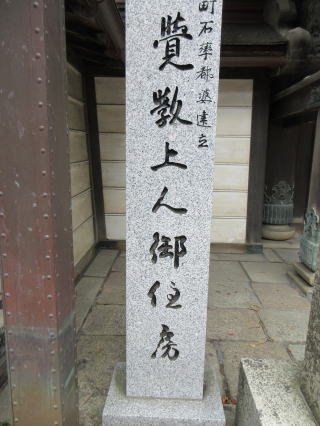 町石率都婆建立
覺斅上人御住房